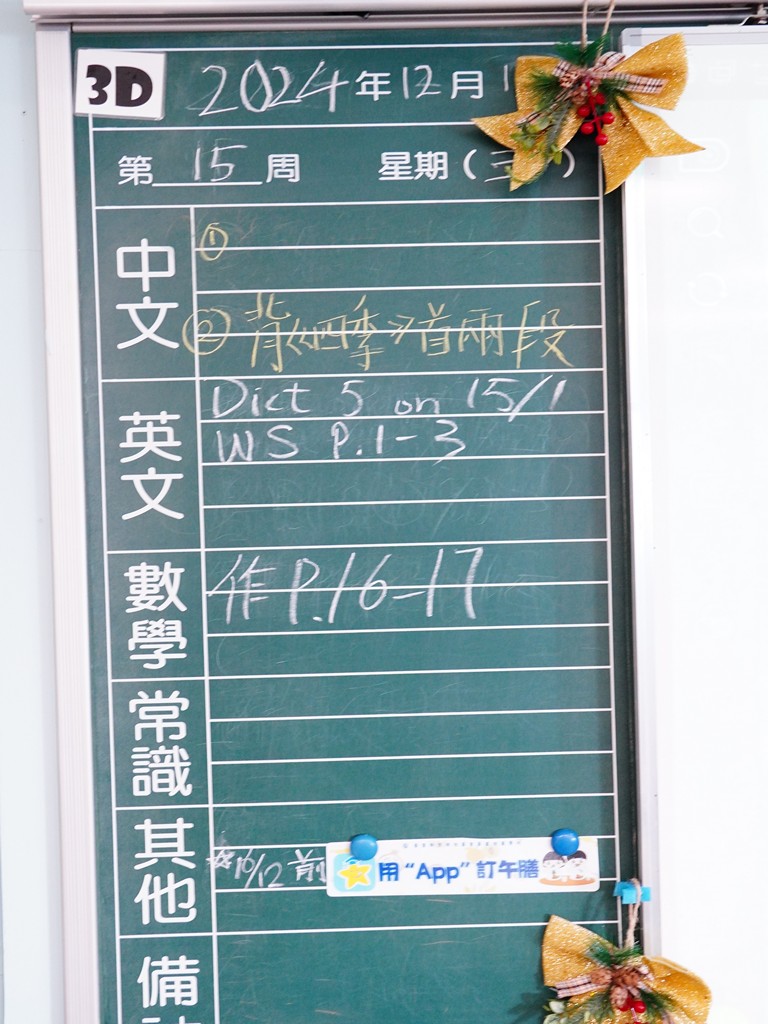 3D
2024年12月1
第15周 星期(三)
中文
①
② 背《四季》首兩段
英文
Dict 5 on 15/1
WS P.1-3
數學
作 P.16-17
常識
其他
☆10/12 前
用“App”訂午膳
備